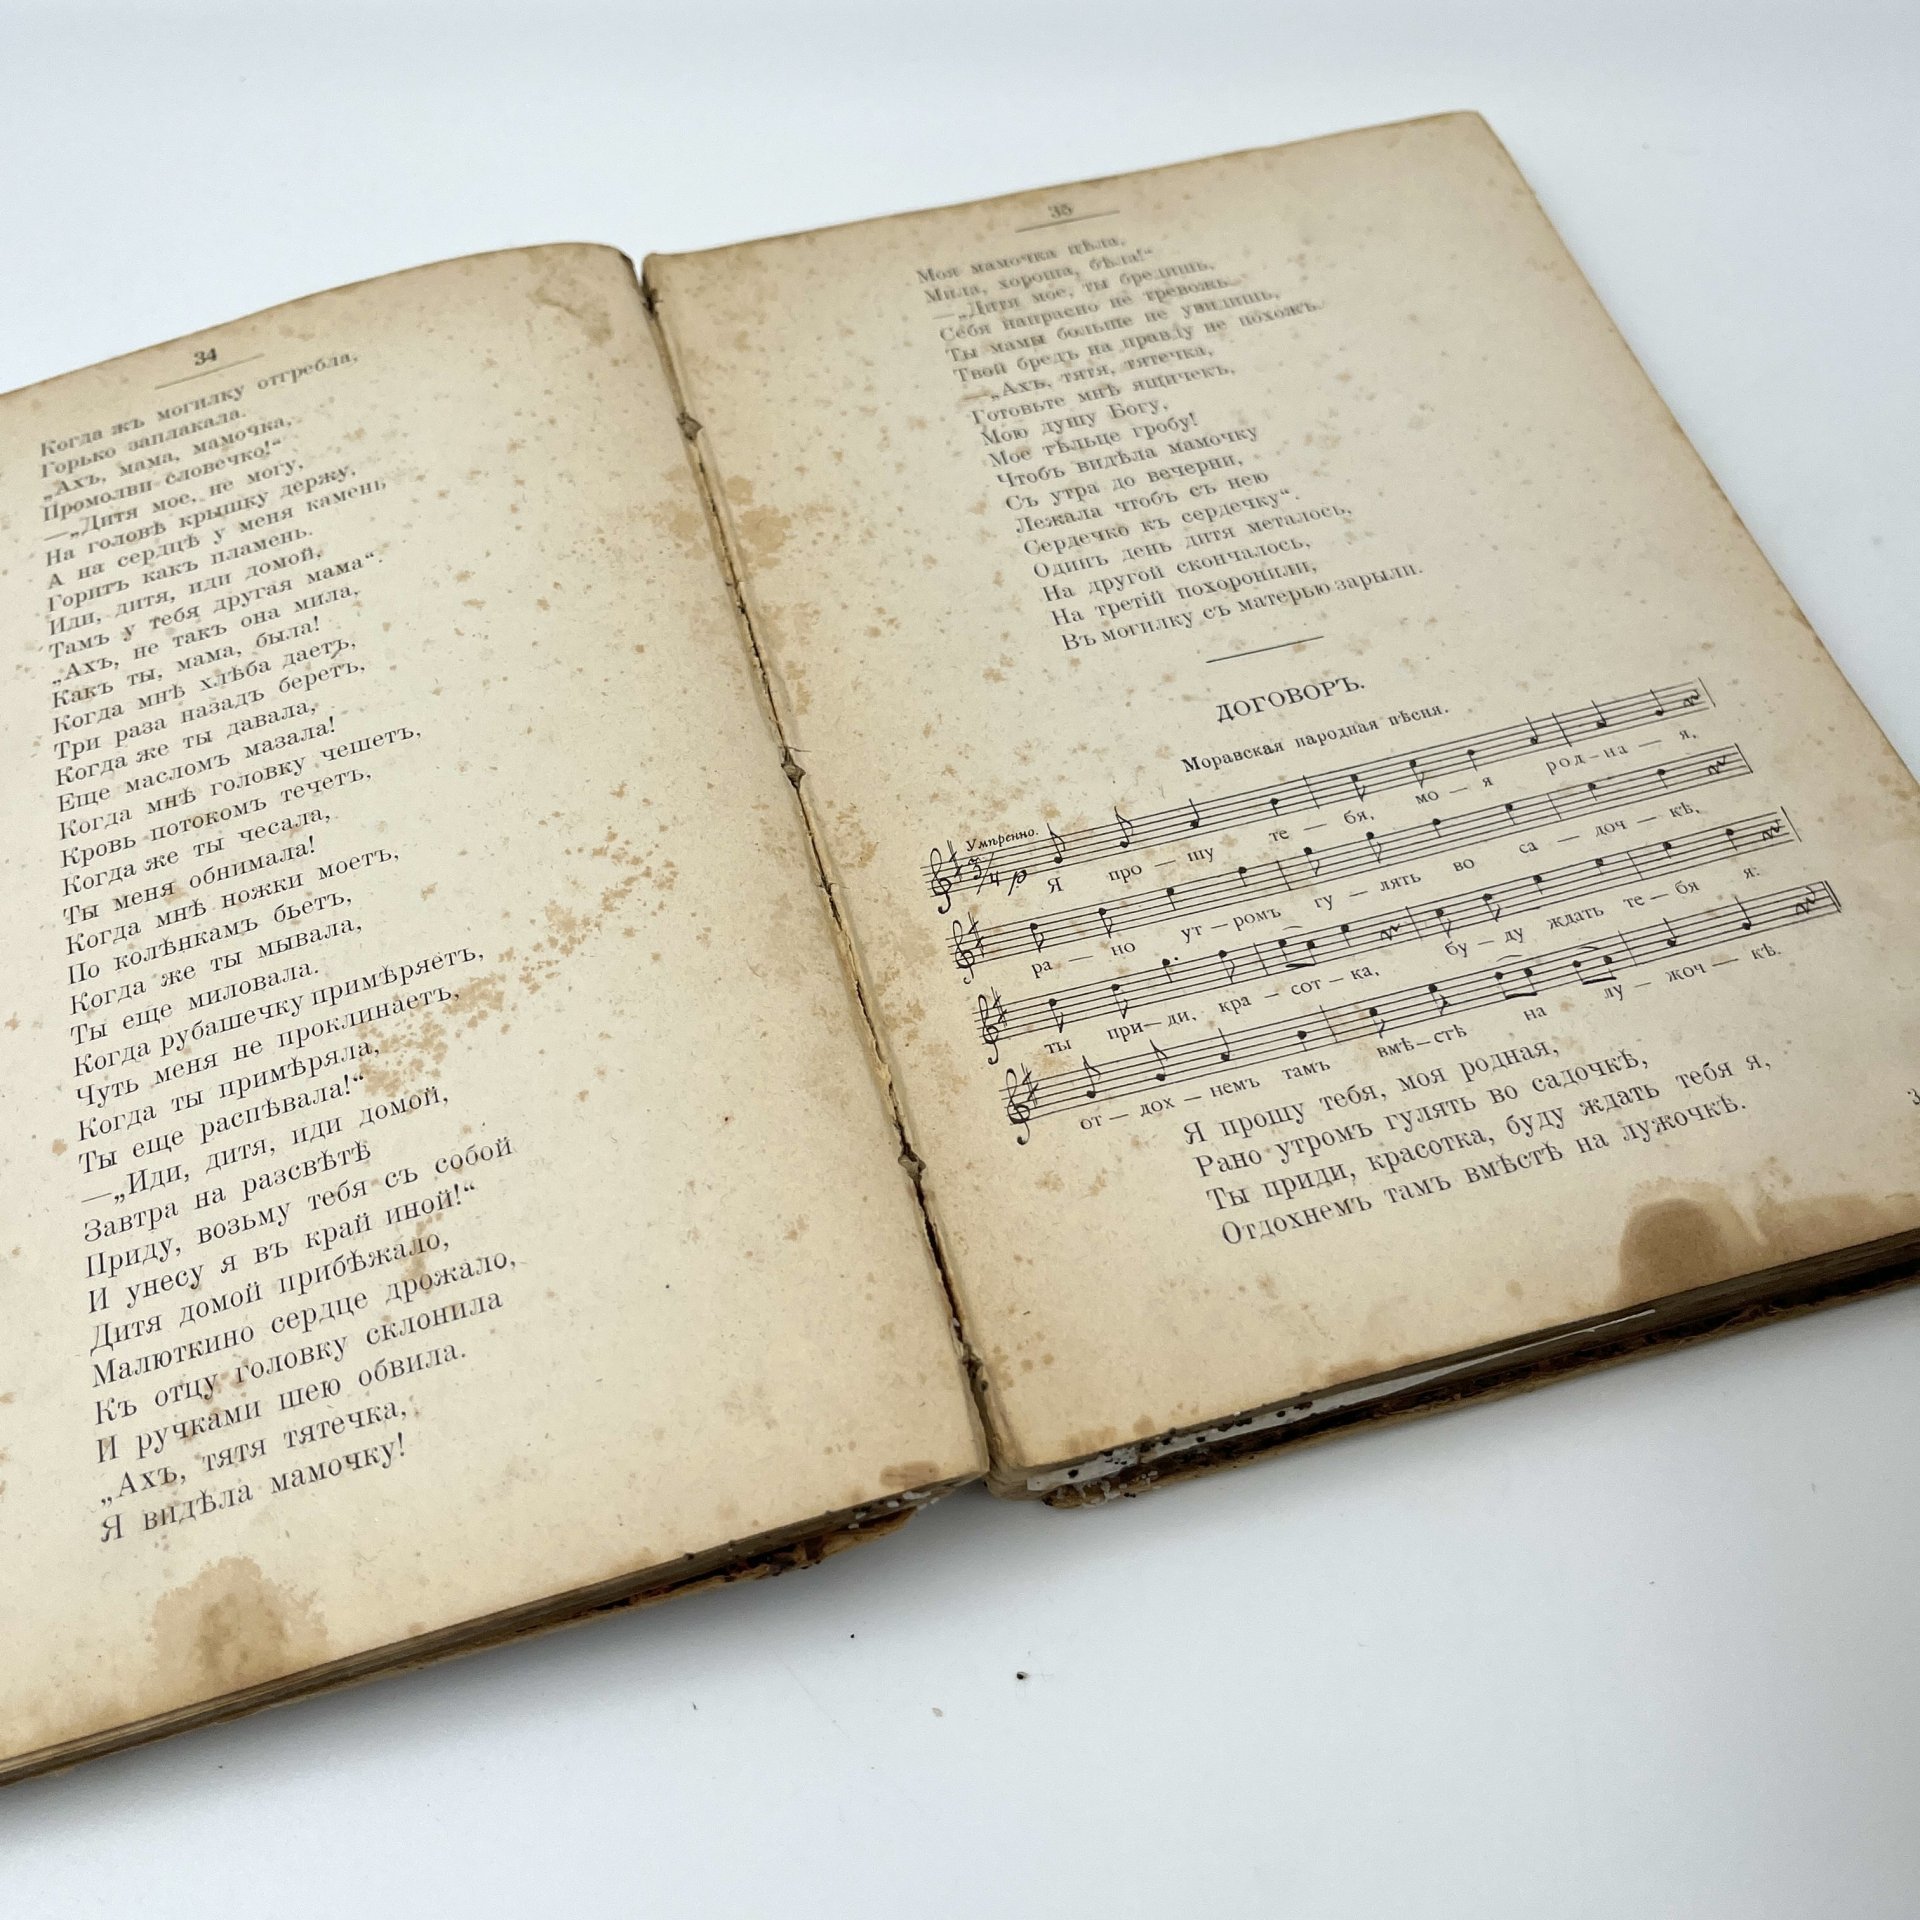 34
Когда жъ могилку отгребла,
Горько заплакала.
„Ахъ, мама, мамочка,
Промолви словечко!“
—„Дитя мое, не могу,
На головѣ крышку держу,
А на сердцѣ у меня камень
Горитъ какъ пламень.
Иди, дитя, иди домой,
Тамъ у тебя другая мама“.
„Ахъ, не такъ она мила,
Какъ ты, мама, была!
Когда мнѣ хлѣба даетъ,
Три раза назадъ беретъ,
Когда же ты давала,
Еще масломъ мазала!
Когда мнѣ головку чешетъ,
Кровь потокомъ течетъ,
Когда же ты чесала,
Ты меня обнимала!
Когда мнѣ ножки моетъ,
По колѣнкамъ бьетъ,
Когда же ты мывала,
Ты еще миловала.
Когда рубашечку примѣряетъ,
Чуть меня не проклинаетъ,
Когда ты примѣряла,
Ты еще распѣвала!“
—„Иди, дитя, иди домой,
Завтра на разсвѣтѣ
Приду, возьму тебя съ собой
И унесу я въ край иной!“
Дитя домой прибѣжало,
Малюткино сердце дрожало,
Къ отцу головку склонила
И ручками шею обвила.
„Ахъ, тятя тятечка,
Я видѣла мамочку!
35
Моя мамочка цѣла,
Мила, хороша, бѣла!“
—„Дитя мое, ты бредишь,
Себя напрасно не тревожь.
Ты мамы больше не увидишь,
Твой бредъ на правду не похожъ.
—„Ахъ, тятя, тятечка,
Готовьте мнѣ ящичекъ,
Мою душу Богу,
Мое тѣльце гробу!
Чтобъ видѣла мамочку
Съ утра до вечерни,
Лежала чтобъ съ нею
Сердечко къ сердечку“.
Одинъ день дитя металось,
На другой скончалось,
На третій похоронили,
Въ могилку съ матерью зарыли.
ДОГОВОРЪ.
Моравская народная пѣсня.
Умѣренно.
3/4 p
Я про — шу те — бя, мо — я род — на — я,
ра — но ут — ромъ гу — лять во са — доч — кѣ,
ты при — ди, кра — сот — ка, бу — ду ждать те — бя я:
от — дох — немъ тамъ вмѣ — стѣ на лу — жоч — кѣ.
Я прошу тебя, моя родная,
Рано утромъ гулять во садочкѣ,
Ты приди, красотка, буду ждать тебя я,
Отдохнемъ тамъ вмѣстѣ на лужочкѣ.